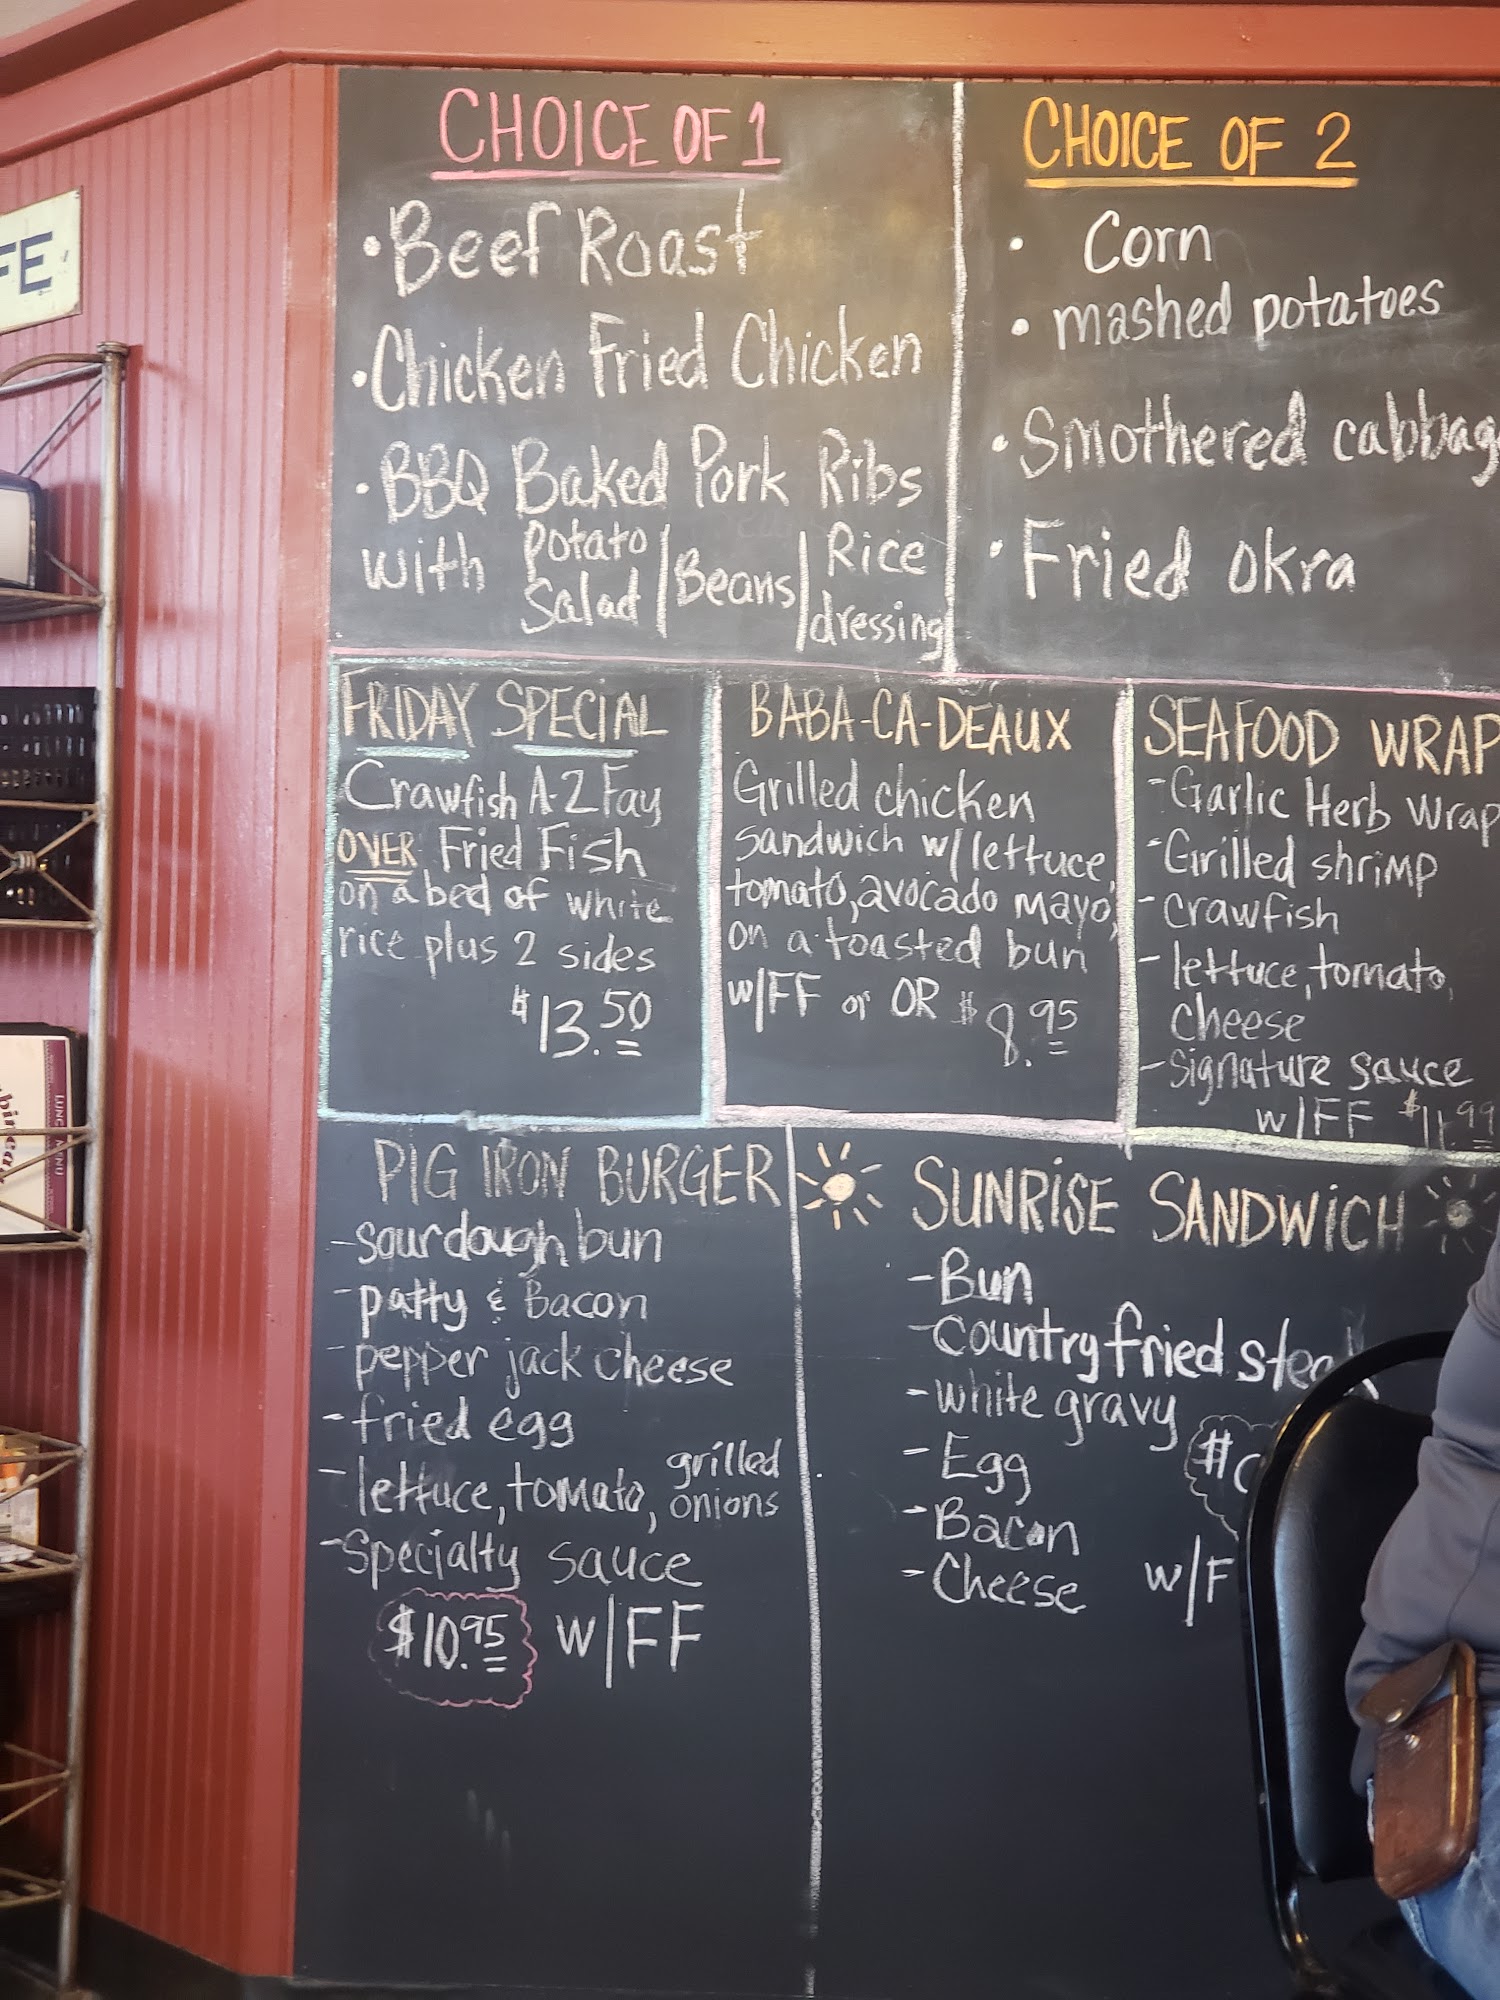 CHOICE OF 1
• Beef Roast
• Chicken Fried Chicken
• BBQ Baked Pork Ribs
with Potato Salad / Beans / Rice dressing
CHOICE OF 2
• Corn
• mashed potatoes
• Smothered cabbag
• Fried okra
FE
FRIDAY SPECIAL
Crawfish A-2 Fay
OVER Fried Fish
on a bed of white
rice plus 2 sides
$13.50
BABA-CA-DEAUX
Grilled chicken
sandwich w/lettuce,
tomato, avocado mayo,
on a toasted bun
w/FF or OR $8.95
SEAFOOD WRAP
- Garlic Herb Wrap
- Grilled shrimp
- Crawfish
- lettuce, tomato,
cheese
- Signature sauce
w/FF $11.99
PIG IRON BURGER
- sourdough bun
- patty & Bacon
- pepper jack cheese
- fried egg
- lettuce, tomato, grilled onions
- Specialty sauce
$10.95 w/FF
SUNRISE SANDWICH
- Bun
- Country fried stea
- white gravy
- Egg
- Bacon
- Cheese w/F
$
LUNCH MENU